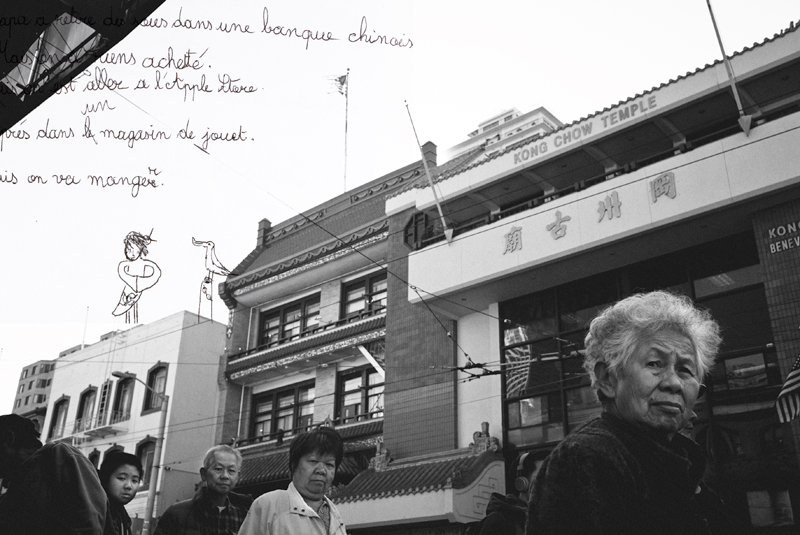 papa a retiré des sous dans une banque chinois
Mais on a riens acheté.
est aller a l'Apple Store.
un
près dans le magasin de jouet.
is on va manger.
KONG CHOW TEMPLE
廟古州岡
KONG
BENEV